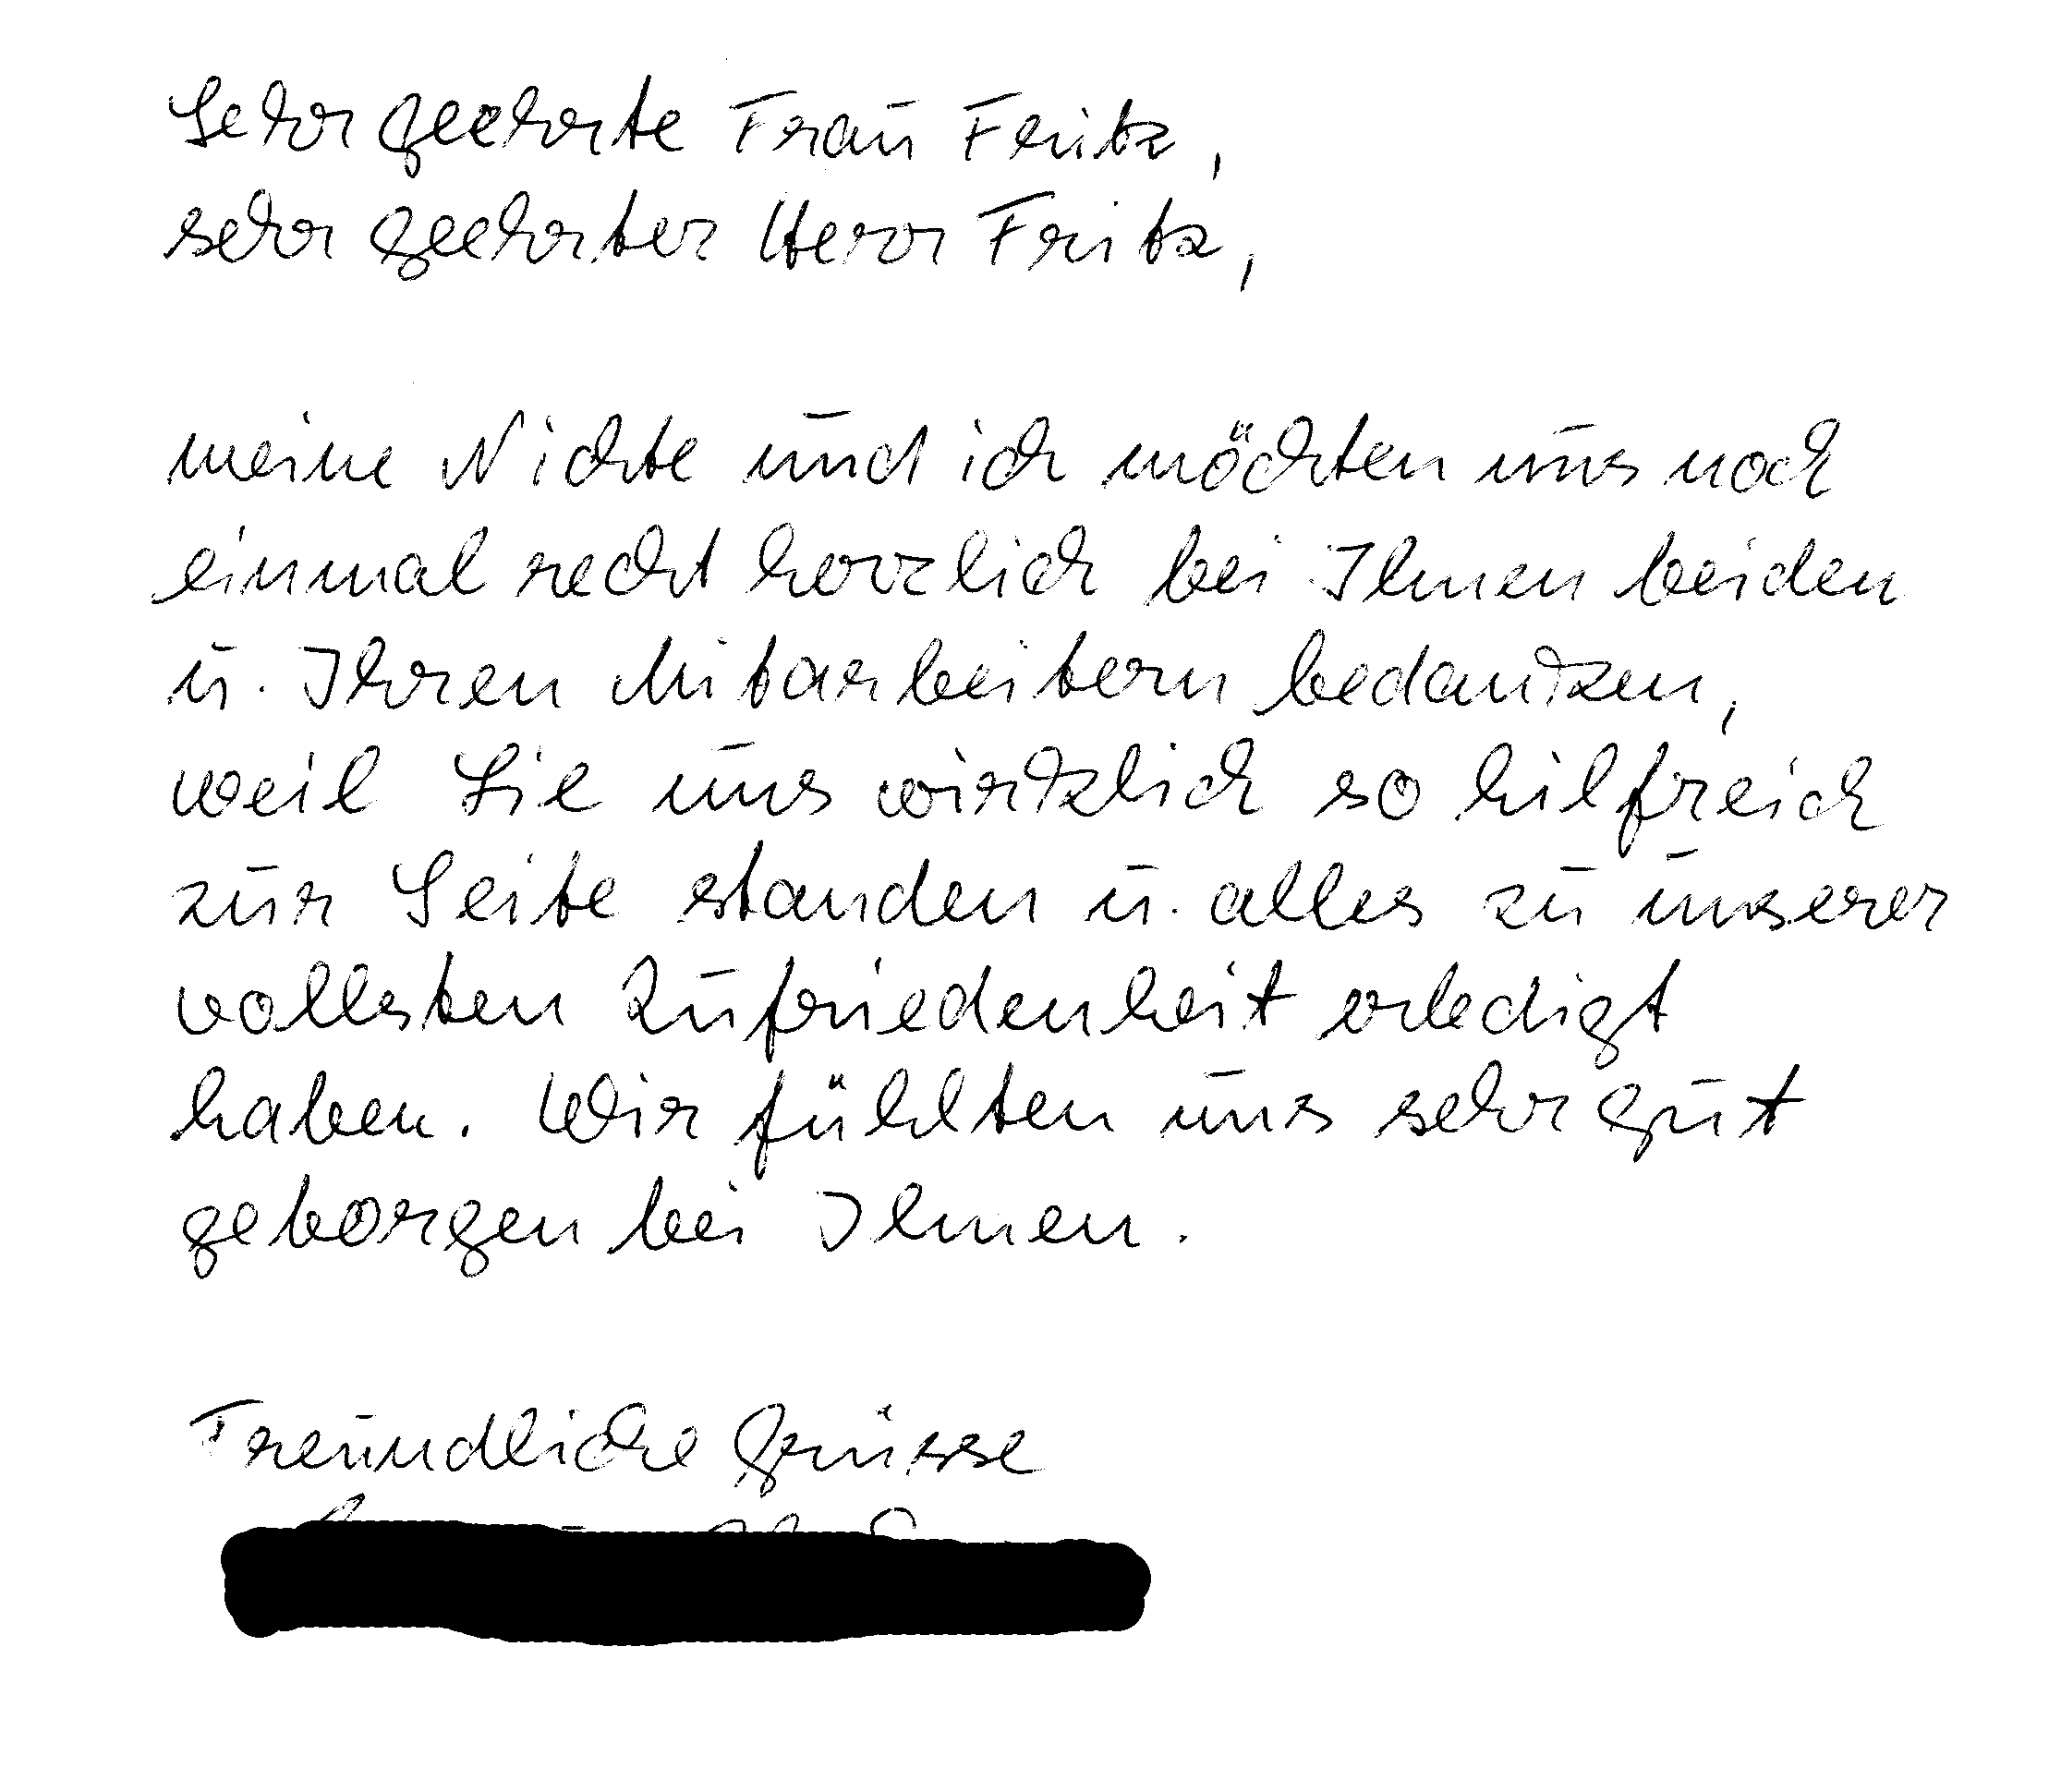 Sehr geehrte Frau Fritz,
sehr geehrter Herr Fritz,
meine Nichte und ich möchten uns noch
einmal recht herzlich bei Ihnen beiden
u. Ihren Mitarbeitern bedanken,
weil Sie uns wirklich so hilfreich
zur Seite standen u. alles zu unserer
vollsten Zufriedenheit erledigt
haben. Wir fühlten uns sehr gut
geborgen bei Ihnen.
Freundliche Grüsse